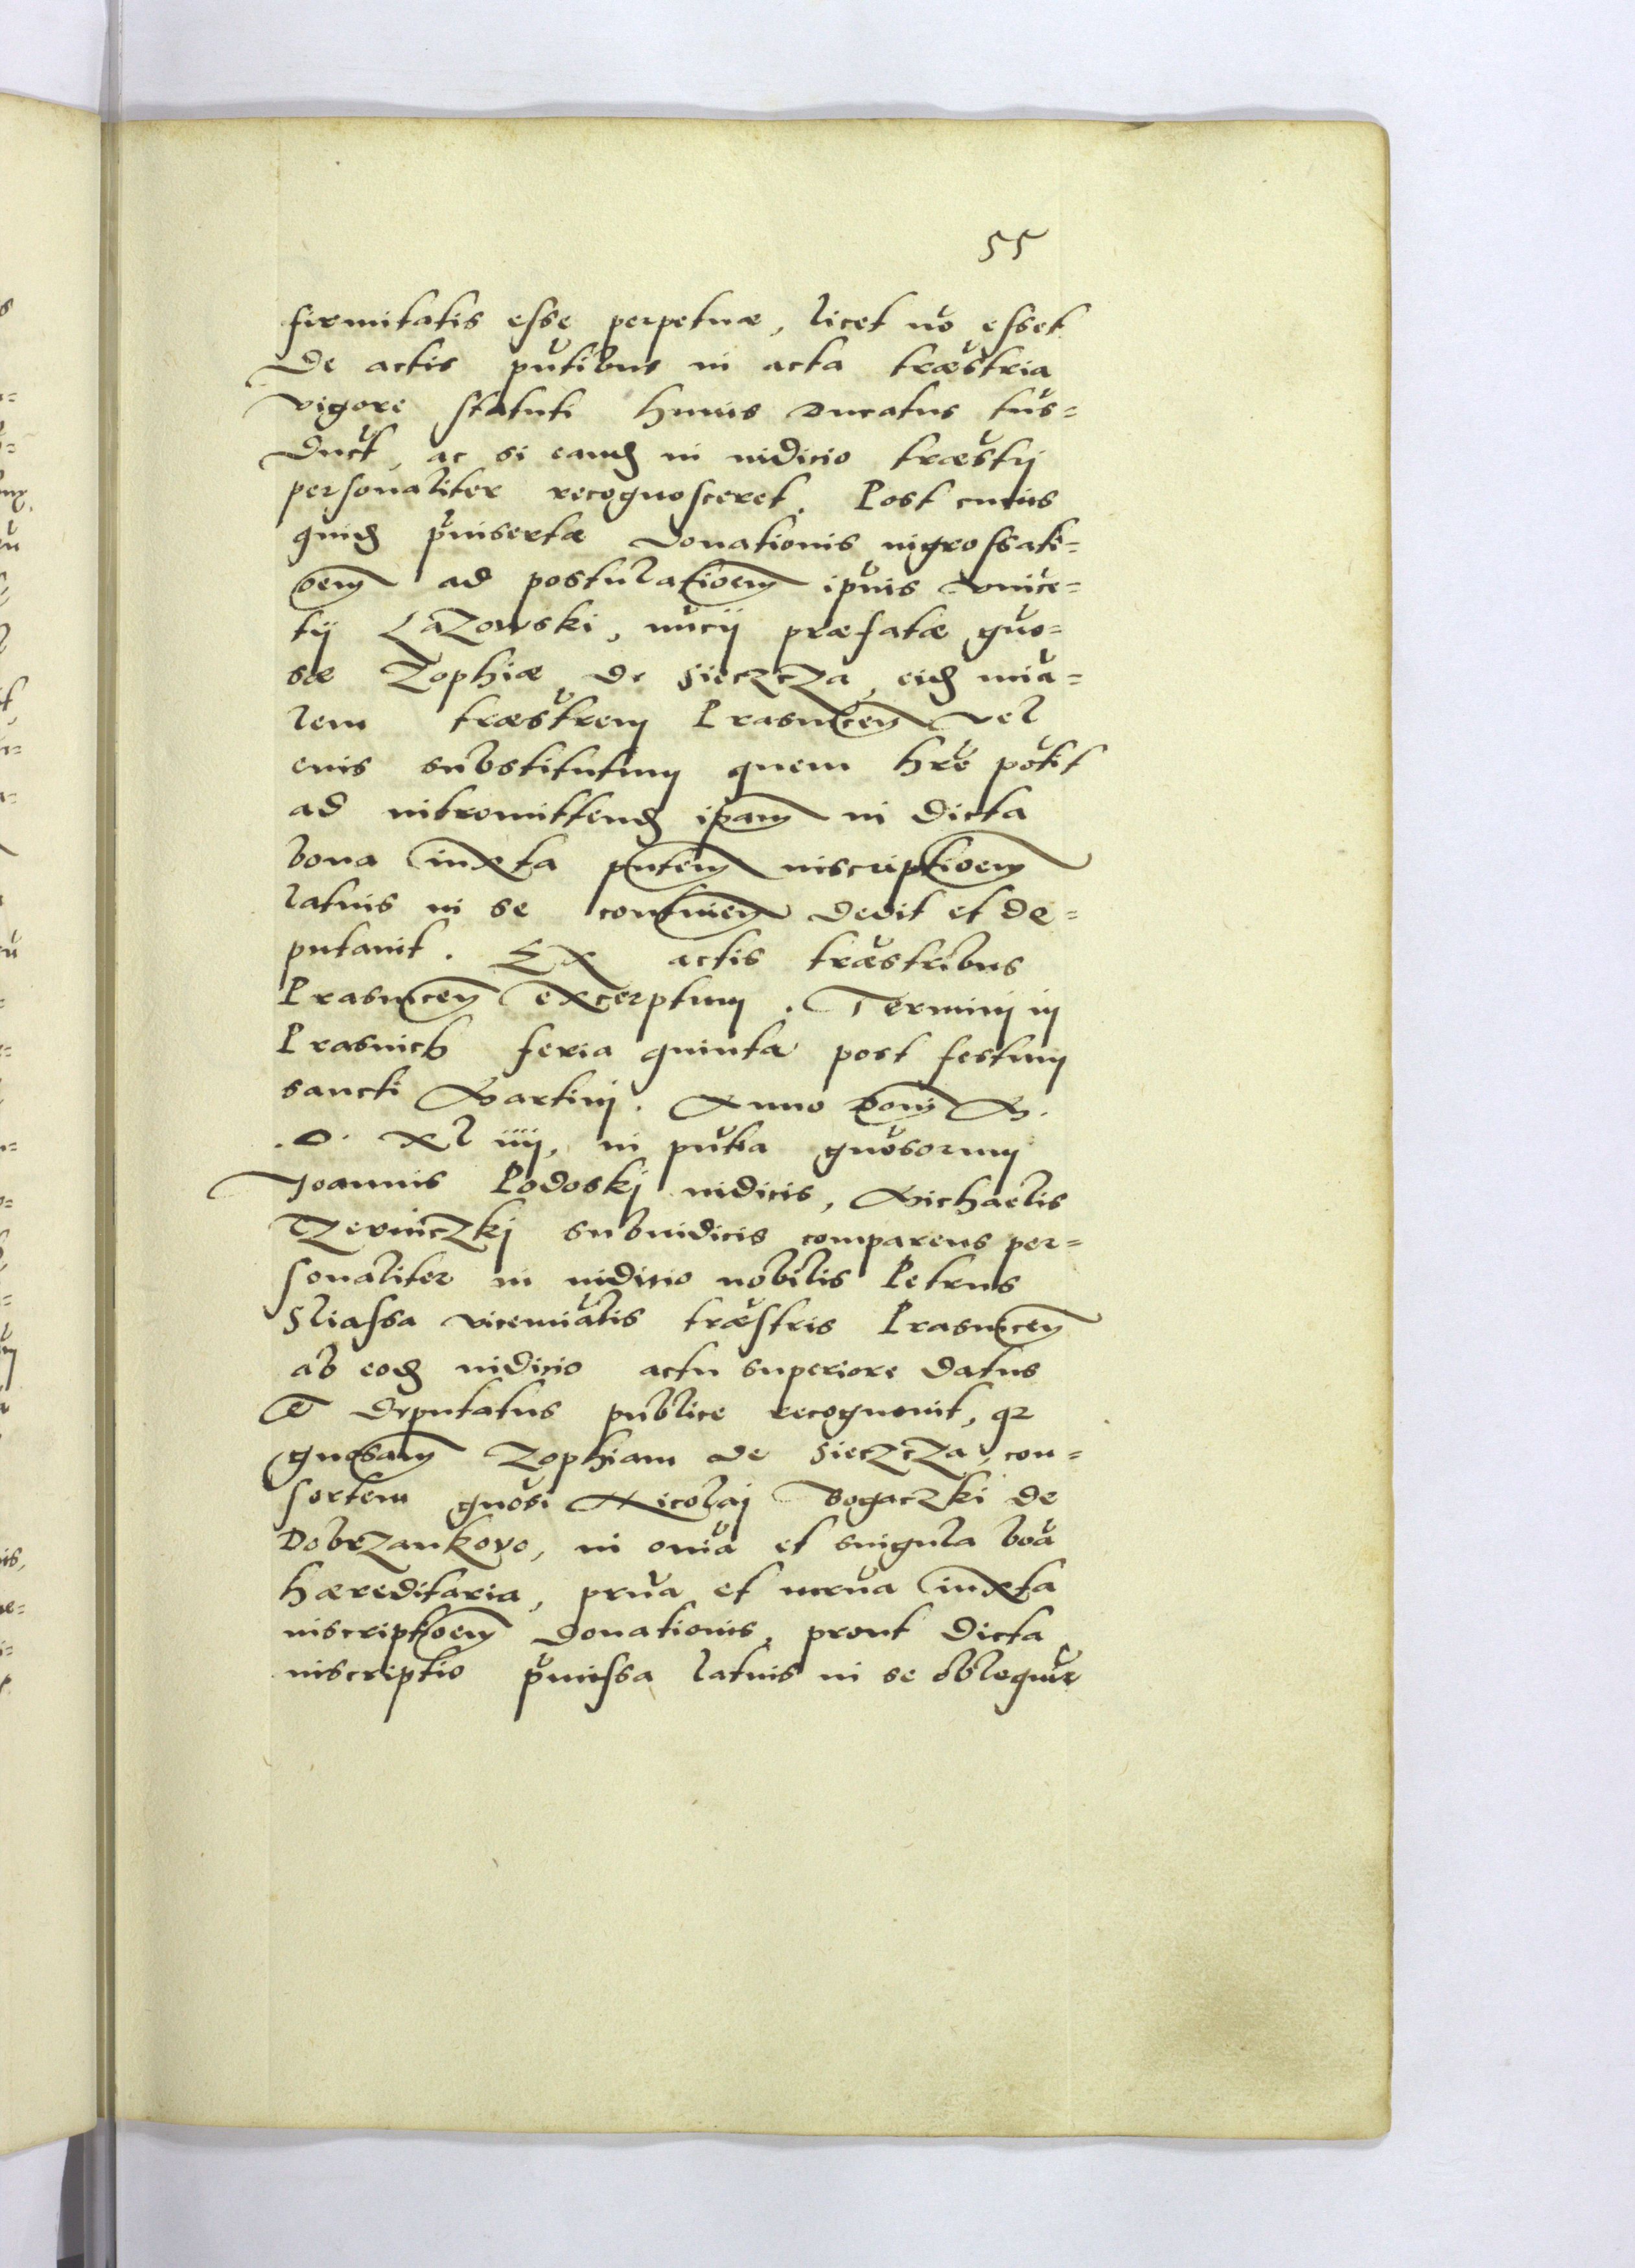 55
firmitatis esse perpetuæ, licet nō esset
de actis pn̄tibus in acta træstria
vigore statuti huius Ducatus tūs=
duct, ac si eand in iudicio træstrj
personaliter recognosceret. Post cuius
quid p̄insertæ Donationis ingrossati=
oem ad postulationem ipsius Vnice=
tij Łazowski, nūcij præfatæ gno=
sæ Zophiæ de Sieczcza, eid miā=
lem træstrem Prasnicen vel
eius substitutum quem hrē potit
ad intromittend ipam in dicta
bona iuxta pntem inscriptioem
latius in se continen dedit et de=
putauit. Ex actis træstribus
Prasnicen excerptum. Terminj in
Prasnich feria quinta post festum
sancti Martinj. Anno Dom M.
.D. xl iiij, in pn̄tia gnosorum
Joannis Podoskj iudicis, Michaelis
Czernickj subiudicis comparens per=
sonaliter in iudicio nobilis Petrus
Sliassa viceminālis træstris Prasnicen
ab eod iudicio actu superiore datus
et deputatus publice recognouit, qz
gnosam Zophiam de Sieczcza, con=
sortem gnosi Nicolaj Bogaczki de
Dobrzankovo, in omā et singula bōa
hæreditaria, prūa et mrūa iuxta
inscriptoem donationis, prout dicta
inscriptio p̄missa latius in se obloquit̄r